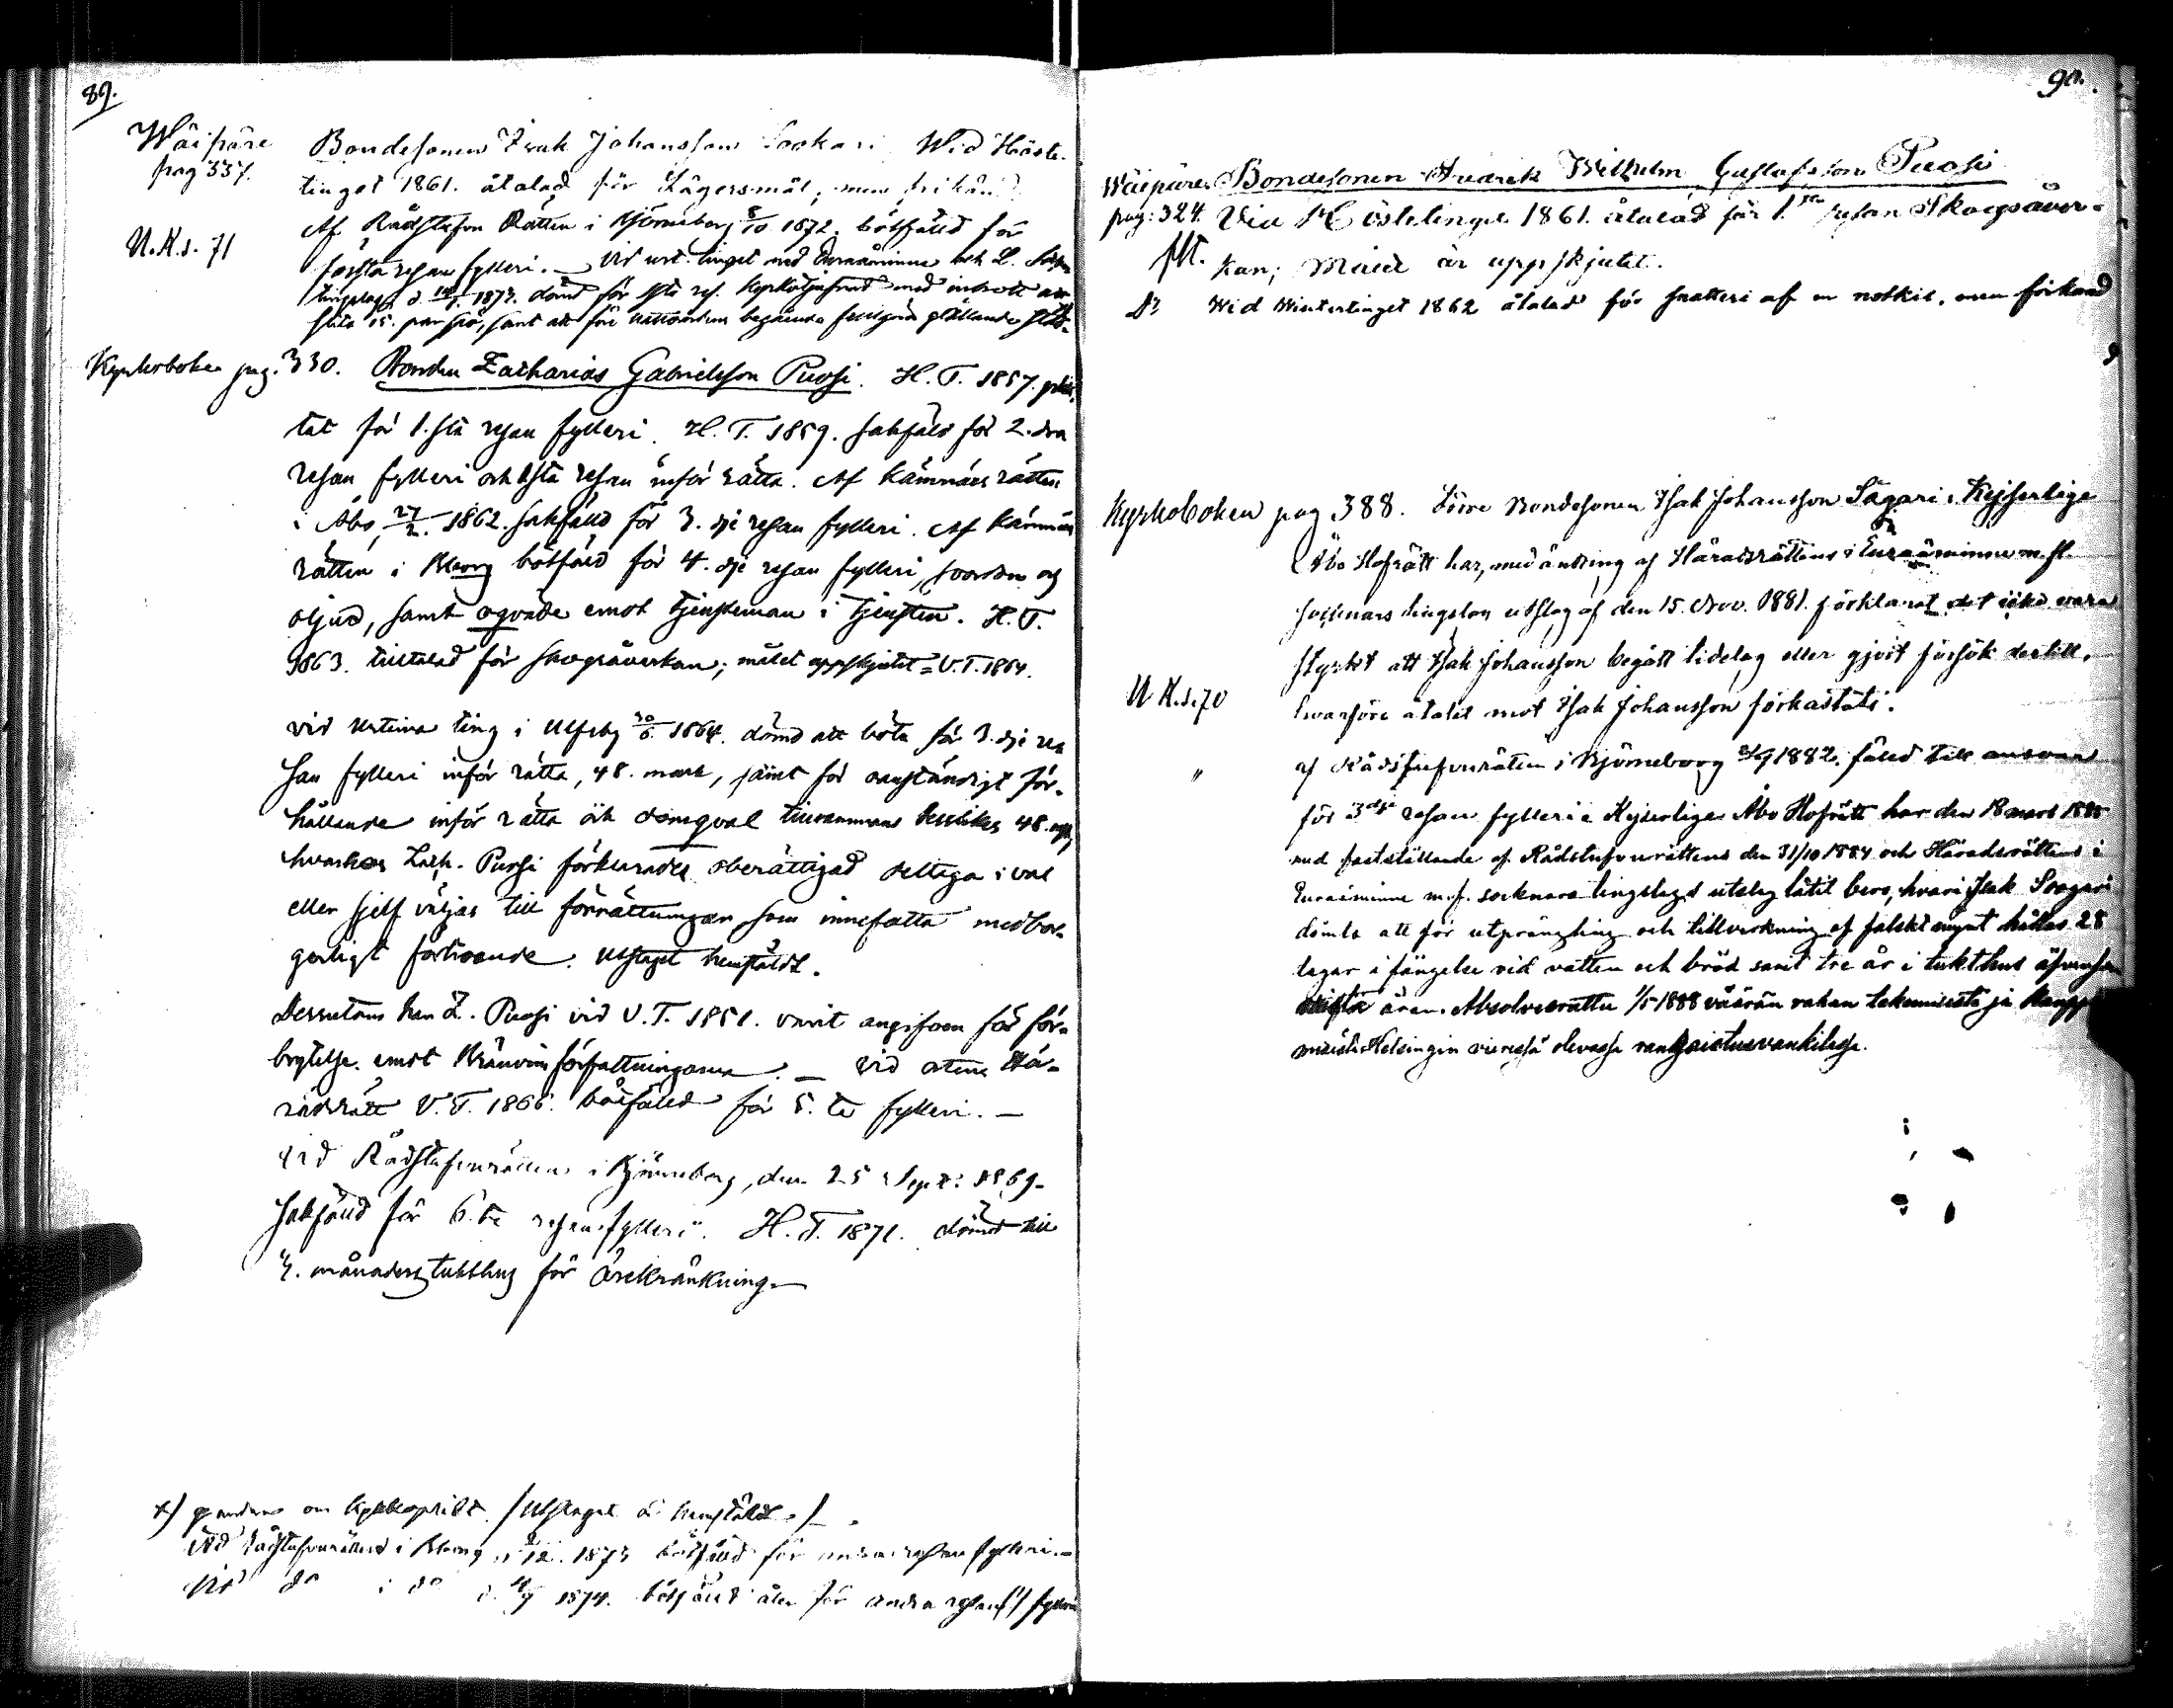 89.
Wäipäre
pag 337.
Bondesonen Isak Johansson Sookari Wid Höste-
tinget 1861. åtalad för Lägersmål, men frikänd
N.K.s. 71
Af Rådstufvu Rätten i Björneborg 8/10 1872. bötfälld för
första resan fylleri. — Vid urt. tinget med Euraåminne och L. Sokn
tingslag, d. 1873. dömd för 1sta res. Kyrkotjufnad med inbrott
slita 15. par spö, samt att före nattvardens begående gällande
Kyrkoboken pag. 330. Bonden Zacharias Gabrielsson Puosi. H. T. 1857. plik-
tat för 1.sta resan fylleri. H. T. 1859. sakfäld för 2.dra
resan fylleri och 1sta resan inför rätta. Af Kämnärs rätten
i Åbo, 27/2. 1862. sakfälld för 3.dje resan fylleri. Af Kämnärs
rätten i Bborg bötfäld för 4.dje resan fylleri, svordom och
oljud, samt ovett emot tjensteman i tjensten. H. T.
1863. tilltalad för skogsåverkan; målet uppskjutit = V. T. 1864.
vid urtima ting i Ulfsby 30/6 1864. dömd att böta för 3.dje re-
san fylleri inför rätta, 48. mark, samt för oanständigt för-
hållande inför rätta och domqval tillsammans 48. mk,
hvarhos Zach. Puosi förklarades oberättigad deltaga i val
eller sjelf väljas till förrättningar, som innefatta medbor-
gerligt förtroende. Utslaget hemstäldt.
Dessutom har Z. Puosi vid V. T. 1851. varit angifven för för-
brytelse emot Bränvinsförfattningarna. — Vid Hä-
radsrätt V. T. 1866. bötfälld för 5.te fylleri. —
vid Rådstufvurätten i Björneborg, den 25 Sept: 1869.
sakfälld för 6.te resan fylleri. H. T. 1871. dömd till
4. månaders tukthus för ärekränkning. —
x) om Kyrkoplikt. /Utslaget är hemstäldt./ — .
Vid Rådstufvurätten i Bborg d. 12. 1873 bötfälld för andra resan fylleri. —
Vid do i do d. 1874. bötfälld åter för andra resan fylleri
90.
Wäipäre Bondesonen Fredrik Wilhelm Gustafsson Puosi
pag: 324. Vid Höstetinget 1861. åtalad för 1.sta resan Skogsåver-
kan; Målet är uppskjutet.
Do Wid Wintertinget 1862 åtalad för snatteri af en notkil, men frikänd
Kyrkoboken pag 388. Förre Bondesonen Isak Johansson Sågari. Kejserlige
Åbo Hofrätt har, med ändring af Häradsrättens i Euraåminne m. fl.
socknars tingslag utslag af den 15. Nov. 1881. förklarat det icke vara
styrkt att Isak Johansson begått tidelag eller gjort försök dertill,
N K.s. 70
hvarföre åtalet mot Isak Johansson förkastats.
" af Rådstufvurätten i Björneborg 1882. fälld till ansvar
för 3dje resan fylleri. Kejserliga Åbo Hofrätt har den 18 mars 1885
med fastställande af Rådstufvurättens den 31/10 1884 och Häradsrättens i
Euraåminne m. fl. socknars tingslags utslag låtit bero, hvari Isak Soogari
dömts att för utprångling och tillverkning af falskt mynt hållas 28
dagar i fängelse vid vatten och bröd samt tre år i tukthus
mista äran. Absolverattu 1/5 1888 väärän rahan tekemisestä ja kaupp
Helsingin vieressä olevassa rangaistusvankilassa.